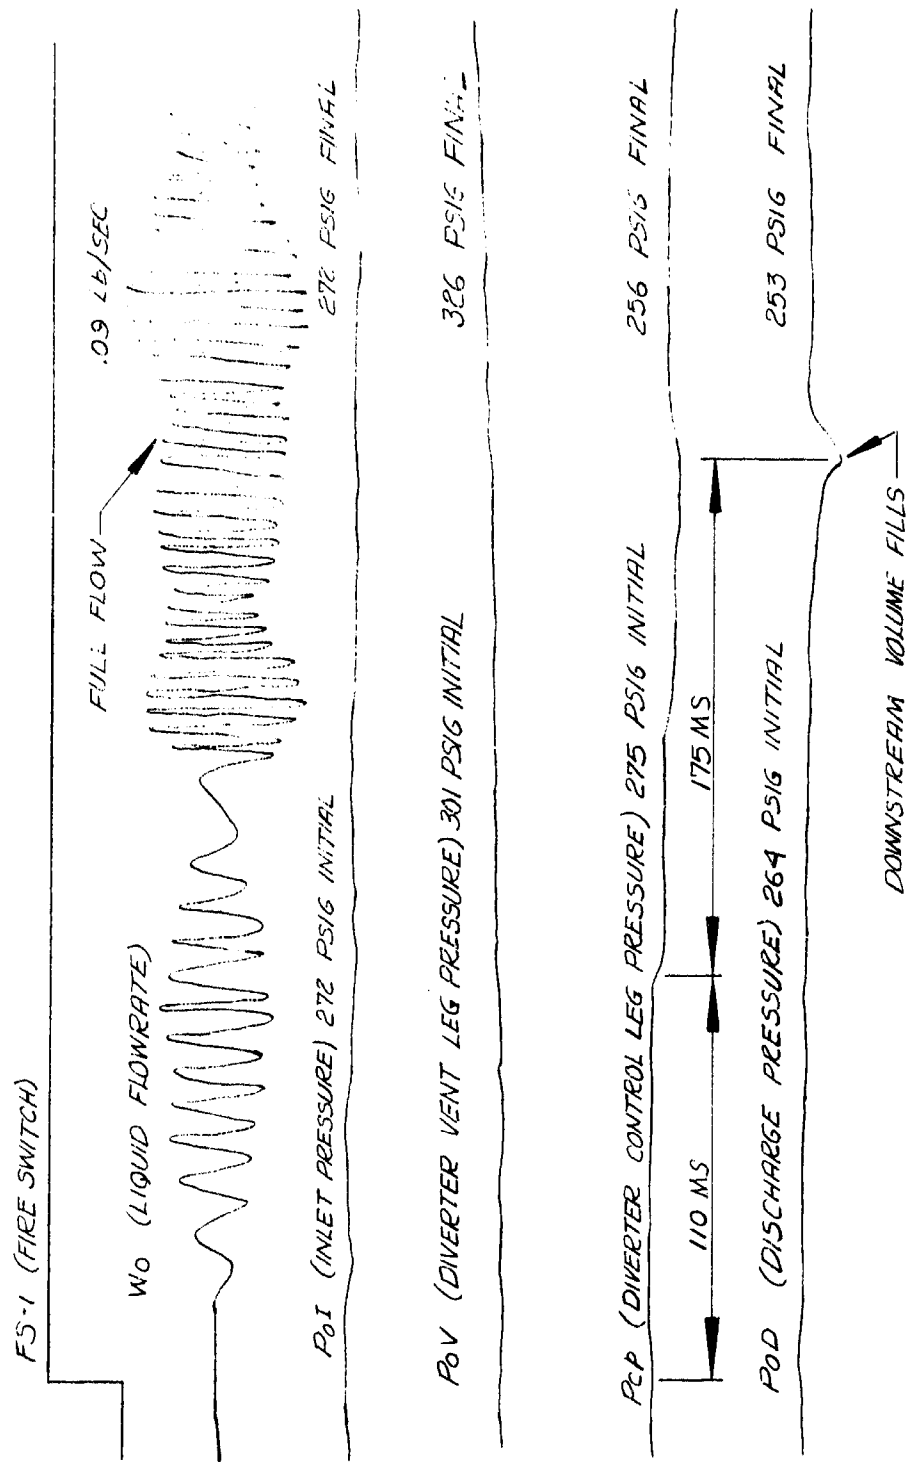 FS-1 (FIRE SWITCH)
.09 Lb/SEC
FULL FLOW
Wo (LIQUID FLOWRATE)
PoI (INLET PRESSURE) 272 PSIG INITIAL
272 PSIG FINAL
PoV (DIVERTER VENT LEG PRESSURE) 301 PSIG INITIAL
326 PSIG FINAL
PcP (DIVERTER CONTROL LEG PRESSURE) 275 PSIG INITIAL
256 PSIG FINAL
110 MS
175 MS
PoD (DISCHARGE PRESSURE) 264 PSIG INITIAL
253 PSIG FINAL
DOWNSTREAM VOLUME FILLS